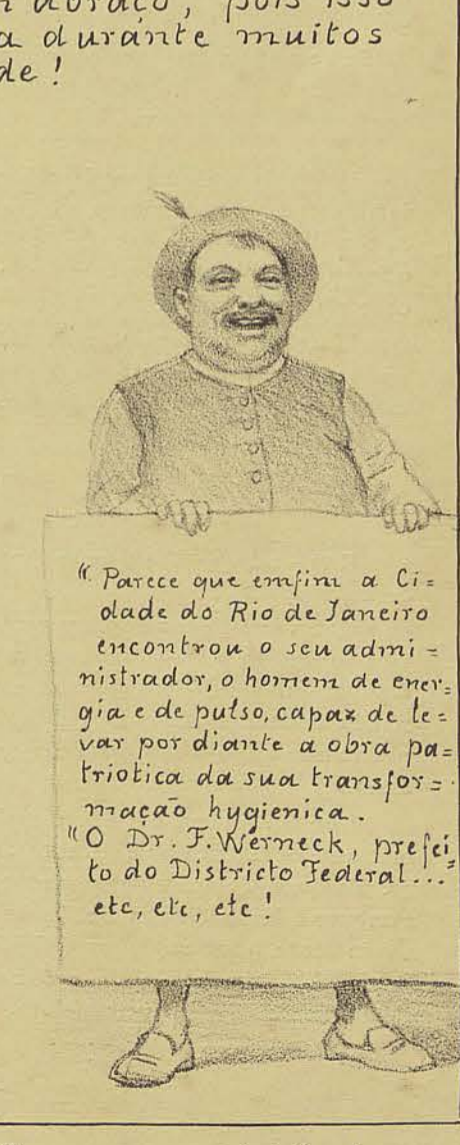 abraço, pois isso
a durante muitos
de!
“Parece que emfim a Ci=
dade do Rio de Janeiro
encontrou o seu admi=
nistrador, o homem de ener=
gia e de pulso, capaz de le=
var por diante a obra pa=
triotica da sua transfor=
mação hygienica.
“O Dr. F. Werneck, prefei
to do Districto Federal...”
etc, etc, etc!